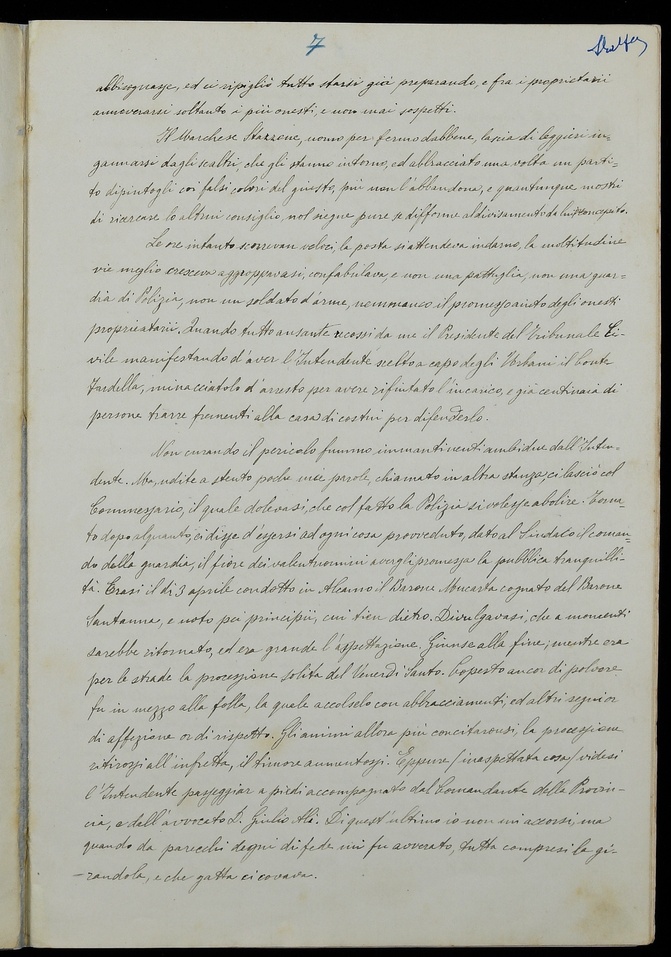 7
abbisognasse, ed ei ripigliò tutto starsi già preparando, e fra i proprietarii
annoverarsi soltanto i più onesti, e non mai sospetti.
Il Marchese Stazzone, uomo per fermo dabbene, lascia di leggieri in-
gannarsi dagli scaltri, che gli stanno intorno, ed abbracciato una volta un parti-
to dipintogli coi falsi colori del giusto, più non l'abbandona, e quantunque mostri
di ricercare lo altrui consiglio, nol siegue pure se difforme al divisamento da lui concepito.
Le ore intanto scorrevan veloci, la posta si attendeva indarno, la moltitudine
vie meglio cresceva aggroppavasi, confabulava, e non una pattuglia, non una guar-
dia di Polizia, non un soldato d'arme, nemmanco il promesso aiuto degli onesti
proprietarii. Quando tutto ansante recossi da me il Presidente del Tribunale Ci-
vile manifestando d'aver l'Intendente scelto a capo degli Urbani il Conte
Fardella, minacciatolo d'arresto per avere rifiutato l'incarico, e già centinaia di
persone trarre frementi alla casa di costui per difenderlo.
Non curando il pericolo fummo immantinenti ambidue dall'Inten-
dente. Ma, udite a stento poche mie parole, chiamato in altra stanza, ci lasciò col
Commessario, il quale dolevasi, che col fatto la Polizia si volesse abolire. Torna-
to dopo alquanto, ci disse d'essersi ad ogni cosa provveduto, dato al Sindaco il coman-
do della guardia, il fiore dei valentuomini avergli promessa la pubblica tranquilli-
tà. Erasi il dì 3 aprile condotto in Alcamo il Barone Mocarta cognato del Barone
Santanna, e noto pei principii, cui tien dietro. Divulgavasi, che a momenti
sarebbe ritornato, ed era grande l'aspettazione. Giunse alla fine, mentre era
per le strade la processione solita del Venerdì Santo. Coperto ancor di polvere
fu in mezzo alla folla, la quale accolselo con abbracciamenti, ed altri segni or
di affezione or di rispetto. Gli animi allora più concitaronsi, la processione
ritirossi all'infretta, il timore aumentossi. Eppure (inaspettata cosa) videsi
l'Intendente passeggiar a piedi accompagnato dal Comandante della Provin-
cia, e dell'avvocato D. Giulio Alì. Di quest'ultimo io non mi accorsi, ma
quando da parecchi degni di fede mi fu avverato, tutta compresi la gi-
-randola, e che gatta ci covava.